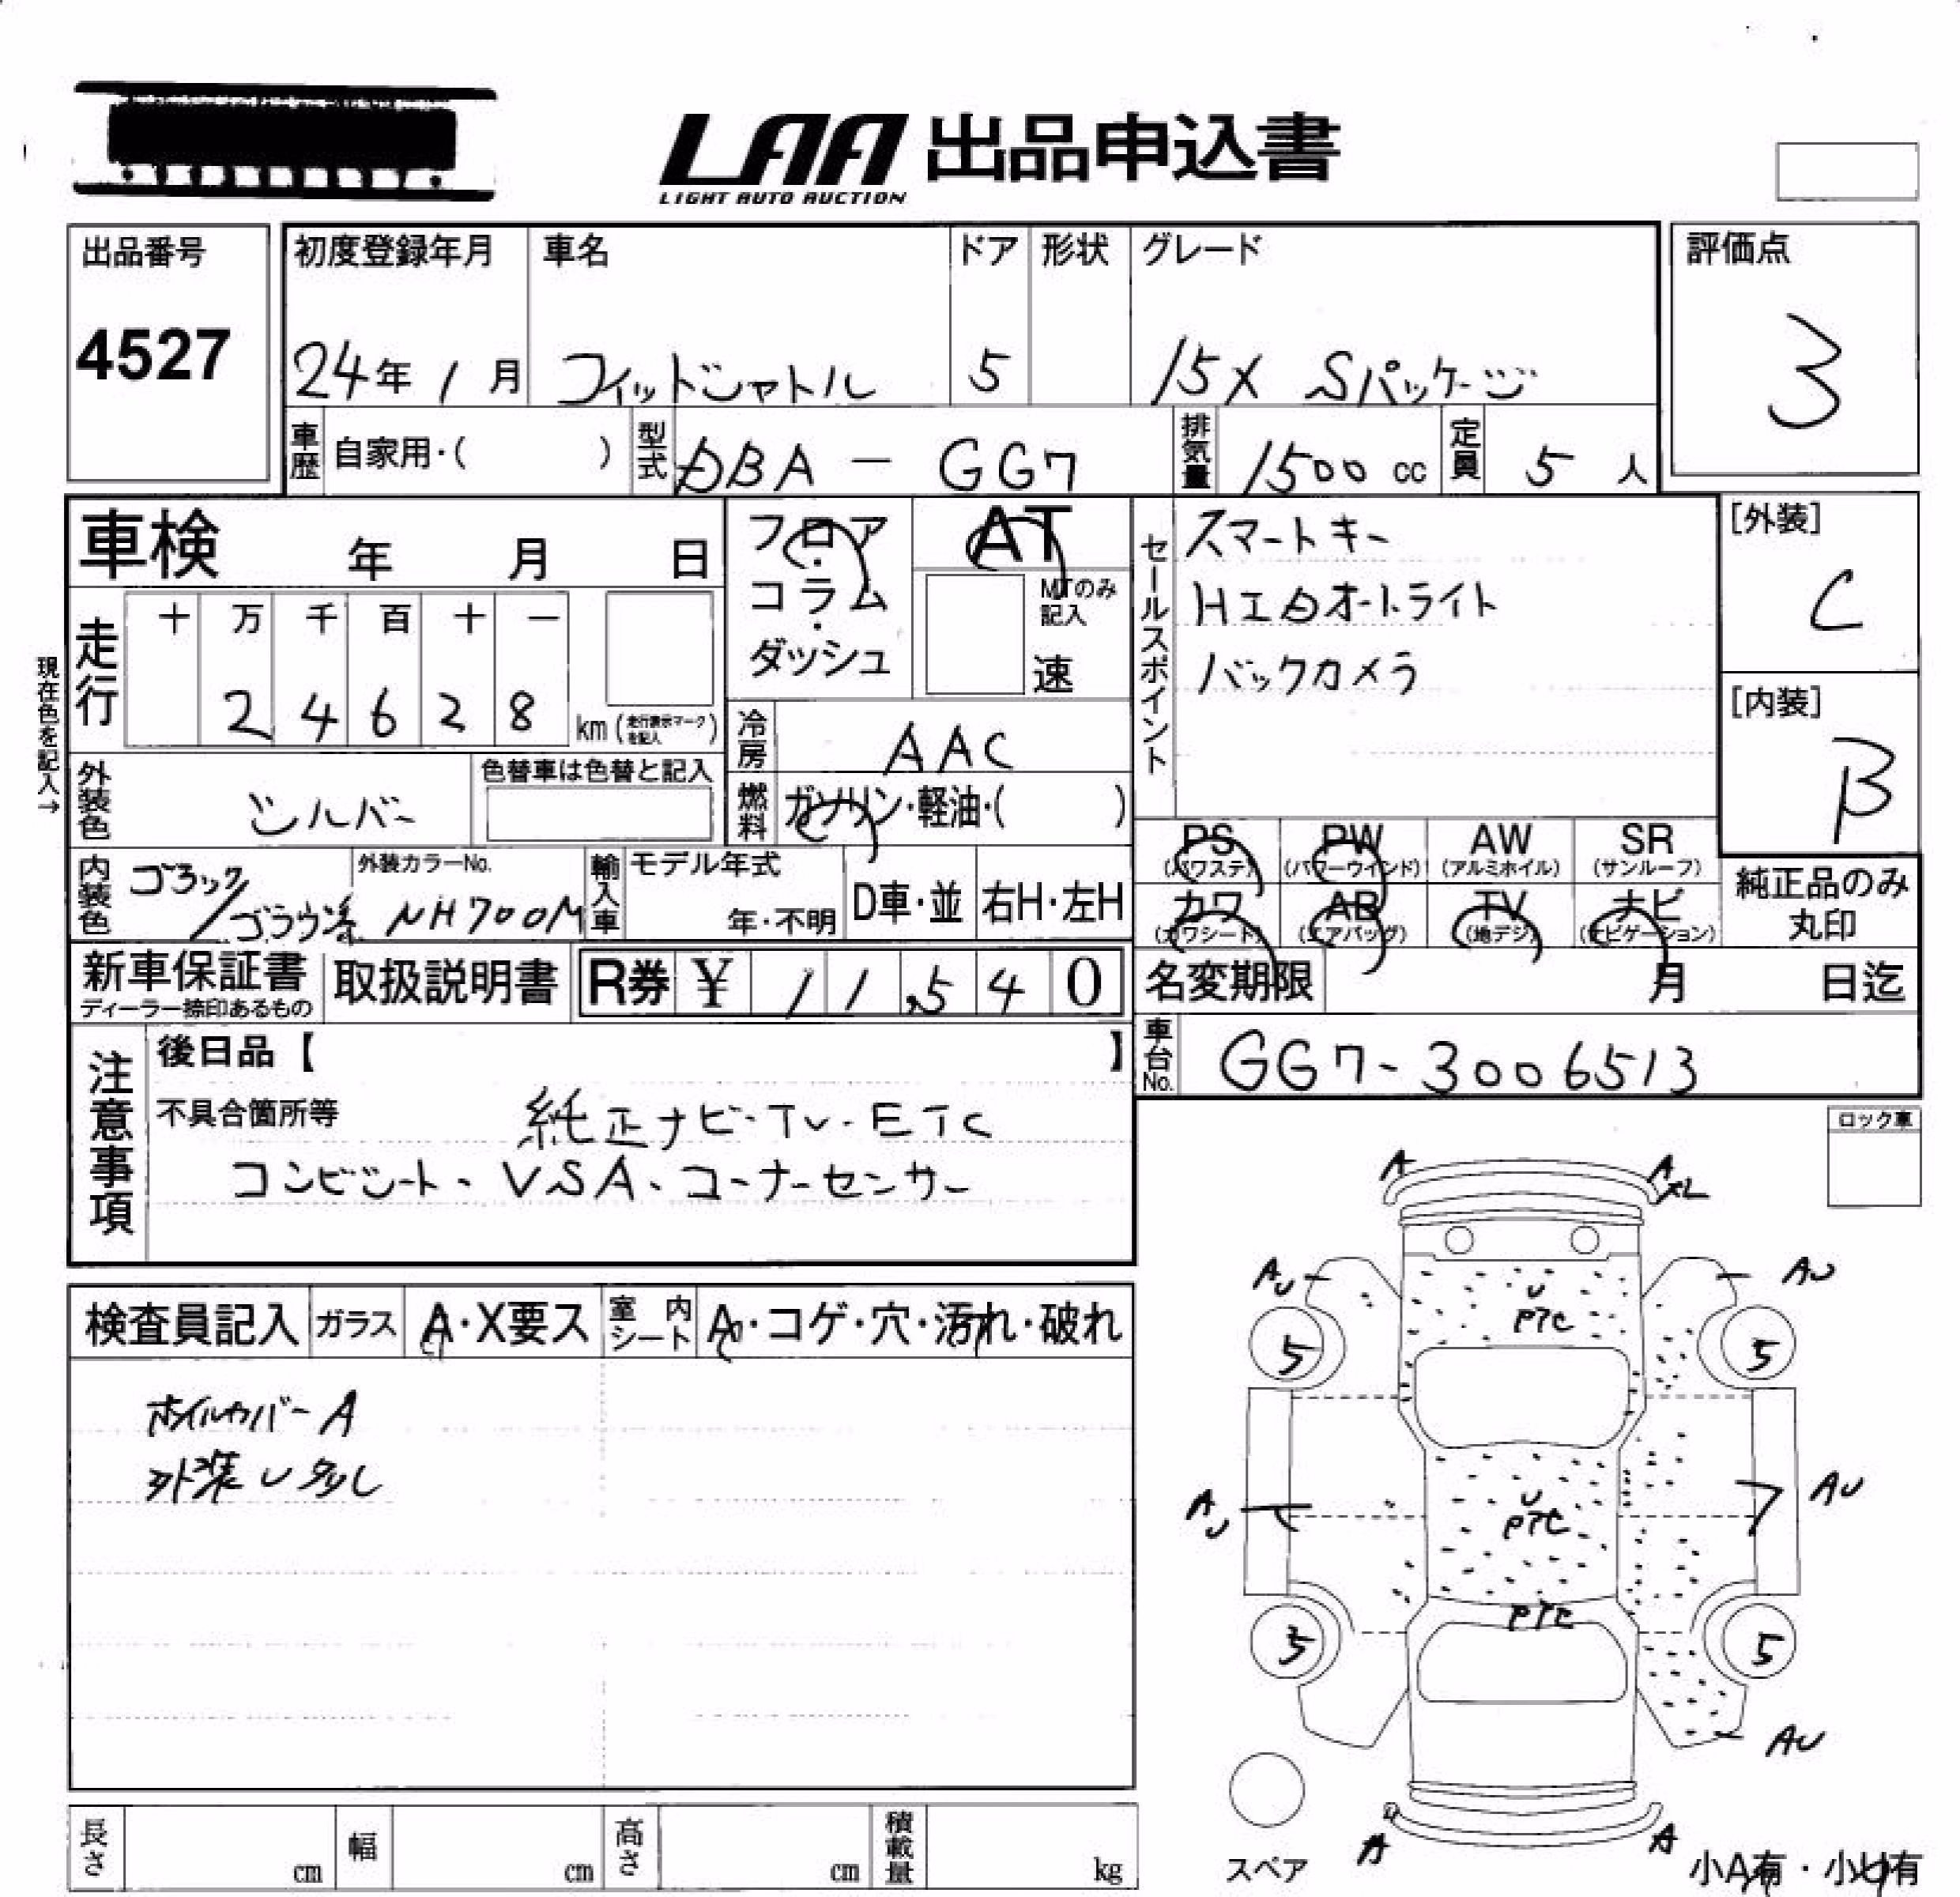 LAA 出品申込書
LIGHT AUTO AUCTION
出品番号
4527
初度登録年月
24年1月
車名
フィットシャトル
ドア
5
形状
グレード
15X Sパッケージ
評価点
3
車歴 自家用・( )
型式 DBA-GG7
排気量 1500 cc
定員 5 人
車検 年 月 日
フロア・コラム・ダッシュ
AT
MTのみ記入
速
セールスポイント
スマートキー
HIDオートライト
バックカメラ
[外装]
C
[内装]
B
現在色を記入→
走行 十 万 千 百 十 一
24628 km (走行表示マークを記入)
冷房 AAC
燃料 ガソリン・軽油・( )
外装色 シルバー
色替車は色替と記入
内装色
外装カラーNo.
NH700M
輸入車 モデル年式
年・不明
D車・並
右H・左H
PS (パワステ)
PW (パワーウインド)
AW (アルミホイル)
SR (サンルーフ)
カワ (カワシート)
AB (エアバッグ)
TV (地デジ)
ナビ (ナビゲーション)
純正品のみ
丸印
新車保証書
ディーラー捺印あるもの
取扱説明書
R券 ¥ 11,540
名変期限 月 日迄
車台No. GG7-3006513
注意事項
後日品【 】
不具合箇所等 純正ナビ・TV・ETC
コンビシート・VSA・コーナーセンサー
ロック車
検査員記入
ガラス A・X要ス
室内シート A・コゲ・穴・汚れ・破れ
ホイルカバーA
外装U多し
A A
XL
AU AU
U
PTC
5 5
AU AU
U
PTC
PTC
5 5
AU
A A
スペア
小A有・小U有
長さ cm
幅 cm
高さ cm
積載量 kg